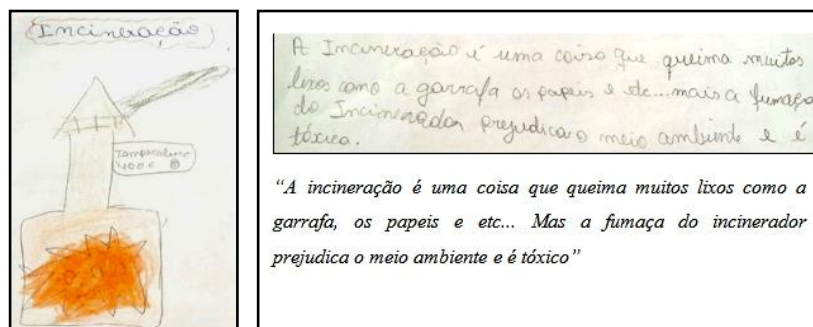 Incineração
Temperatura
400 c
A Incineração é uma coisa que queima muitos
lixos como a garrafa os papeis e etc...mais a fumaça
do Incinerador prejudica o meio ambiente e é
tóxico.
“A incineração é uma coisa que queima muitos lixos como a
garrafa, os papeis e etc... Mas a fumaça do incinerador
prejudica o meio ambiente e é tóxico”